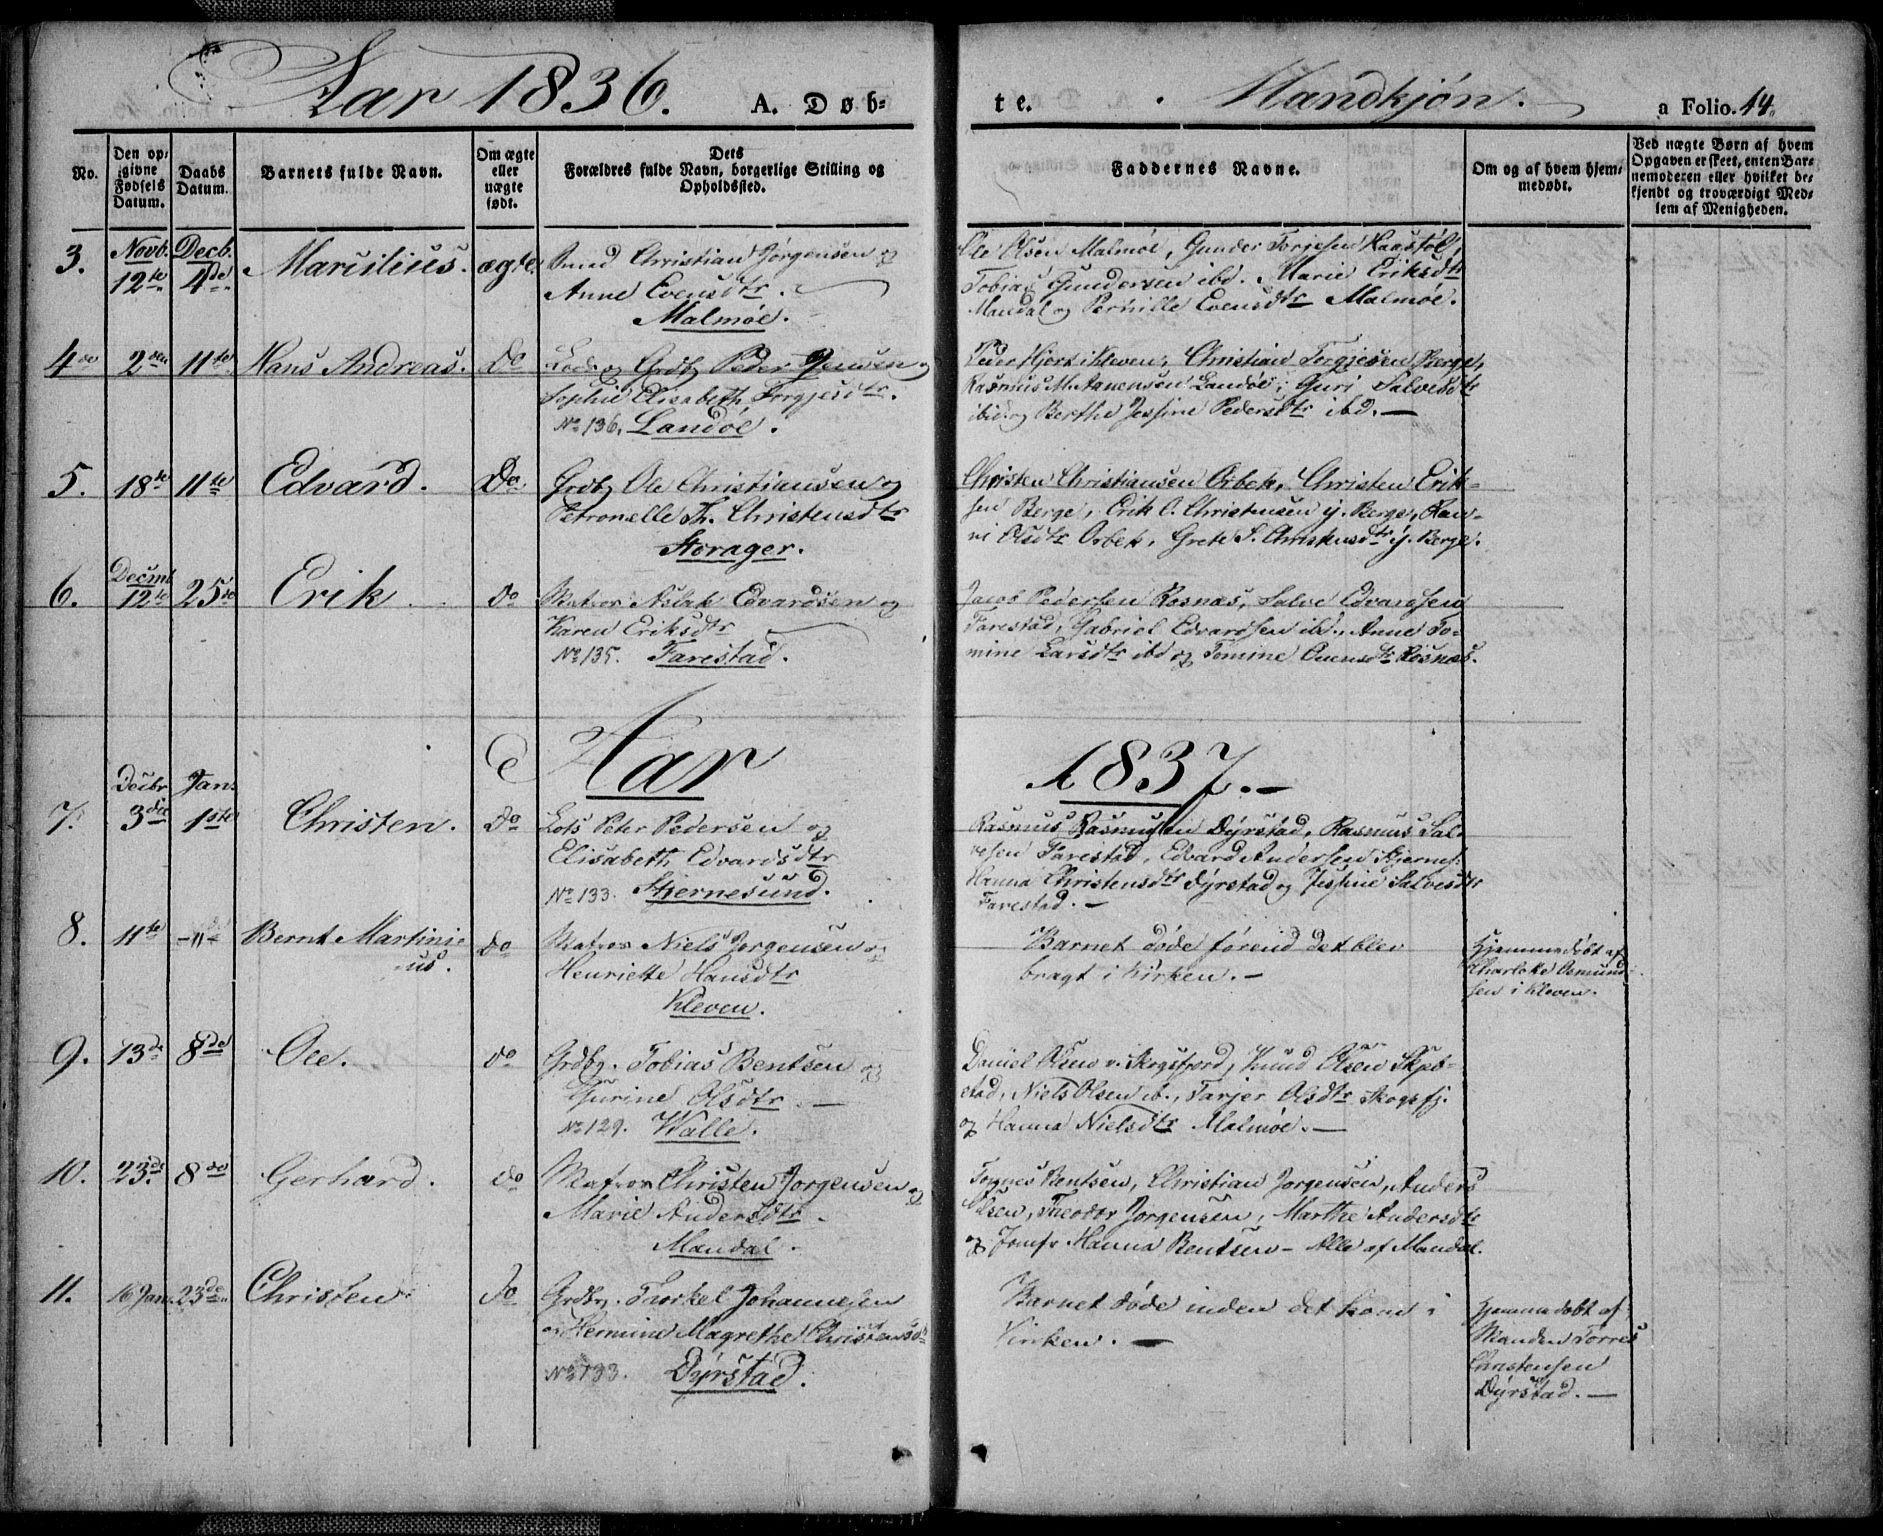 Aar 1836. A. Døb-
te. Mandkjøn. a Folio. 44.
No.
Den op-
givne
Fødsels
Datum.
Daabs
Datum.
Barnets fulde Navn.
Om ægte
eller
uægte
født.
Dets
Forældres fulde Navn, borgerlige Stilling og
Opholdssted.
Faddernes Navne.
Om og af hvem hjem-
medøbt.
Ved uægte Børn af hvem
Opgaven er skeet, enten Bar-
nemoderen eller hvilket be-
kjendt og troværdigt Med-
lem af Menigheden.
3. Novb. 12te Decb. 4de Marcilius. ægte
Christian Jørgensen og
Anne Evensdtr.
Malmøe.
Ole Olsen Malmøe, Gunder Torjesen Haastøl,
Tobias Gundersen ibd. Marie Eriksdtr
Mandal og Pernille Evensdtr Malmøe.
4 2den 11te Hans Andreas. Do
Lods og Grdbr Peder Jensen og
Sophie Elisabeth Torgjesdtr.
No 136. Landøe.
Peder Hjort i Kleven, Christian Torgjesen Berge,
Rasmus M. Landøe, Guri Salvesdtr
ibid og Berthe Jessine Pedersdtr ibd. —
5. 18te 11te Edvard. Do.
Grdbr Ole Christiansen og
Petronelle Th. Christensdtr
Storager.
Christen Christiansen Orbek, Christen Erik-
sen Berge, Erik C. Christensen y. Berge, Ran-
ni Olsdtr Orbek, Grete S. Christensdtr y. Berge.
6. Decmb 12te 25te Erik. do
Matros Aslak Edvardsen og
Karen Eriksdtr
No 135. Farestad.
Jacob Pedersen Rosnæs, Salve Edvardsen
Farestad, Gabriel Edvardsen ibd., Anne To-
mine Larsdtr ibd og Tomine Evensdtr Rosnæs.
Aar 1837. —
7. Decbr 3die Jan. 1ste Christen. Do
Lots Peter Pedersen og
Elisabeth Edvardsdtr
No 133. Stjernesund.
Rasmus Rasmussen Dyrstad, Rasmus Sal-
vesen Farestad, Edvard Andersen Stjernes.
Hanna Christensdtr Dyrstad og Jessine Salvesdtr
Farestad. —
8. 11te —"— Bernt Martini-
us. Do
Matros Niels Jorgensen og
Henriette Hansdtr
Kleven.
Barnet døde førend det blev
bragt i Kirken. —
Hjemmedøbt af
Charlotte Osmund-
sen i Kleven.
9. 13de 8de Ole. do
Grdbr. Tobias Bentsen og
Gurine Olsdtr. —
No 129. Walle.
Daniel Olsen v. Skogsfjord, Knud Olsen Skjeb-
stad, Niels Olsen ib., Tarjer Olsdtr Skogsfj.
og Hanna Nielsdtr Malmøe. —
10. 23de 8de Gerhard. do
Matros Christen Jorgensen og
Marie Andersdtr.
Mandal.
Tognes Bentsen, Christian Jorgensen, Anders
Olsen, Theodor Jorgensen, Marthe Andersdtr
og Jomfr Hanna Bentsen — Alle af Mandal.
11. 16 Jan. 23de Christen. do
Grdbr. Thorkel Johannesen
og Hermine Magrethe Christensdtr
No 133. Dyrstad.
Barnet døde inden det kom i
Kirken. —
Hjemmedøbt af
Manden Torres
Christensen
Dyrstad. —